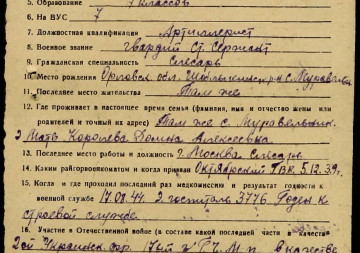 5. Образование 7 классов
6. На ВУС 7
7. Должностная квалификация Артиллерист
8. Военное звание гвардии Ст. Сержант
9. Гражданская специальность Слесарь
10. Место рождения Орловск обл. с. Муравлен
11. Последнее место жительства Там же
12. Где проживает в настоящее время семья (фамилия, имя и отчество жены или
родителей и точный их адрес) Там же с.
Мать Королева Домна Алексеевна
13. Последнее место работы и должность г. Москва Слесарь
14. Каким райгорвоенкоматом и когда призван Октябрский РВК 5.12.39 г.
15. Когда и где проходил последний раз медкомиссию и результат годности к
военной службе 17.01.44. госпиталь 3776. Годен к
строевой службе
16. Участие в Отечественной войне (в составе какой последней части в качестве
2ой Украинск. фр. в качестве